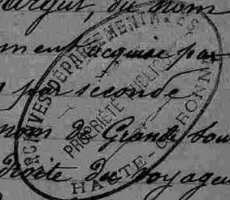 du nom
acquise par
par seconde
nom de Grande
droite du voyageur
ARCHIVES DÉPARTEMENTALES
PROPRIÉTÉ PUBLIQUE
HAUTE-GARONNE